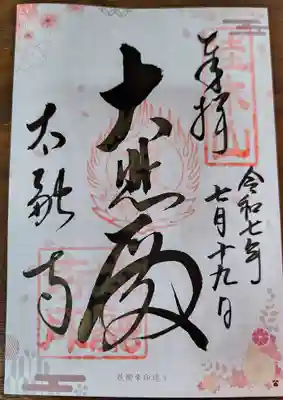 奉拝
令和七年
七月十九日
大悲殿
太融寺